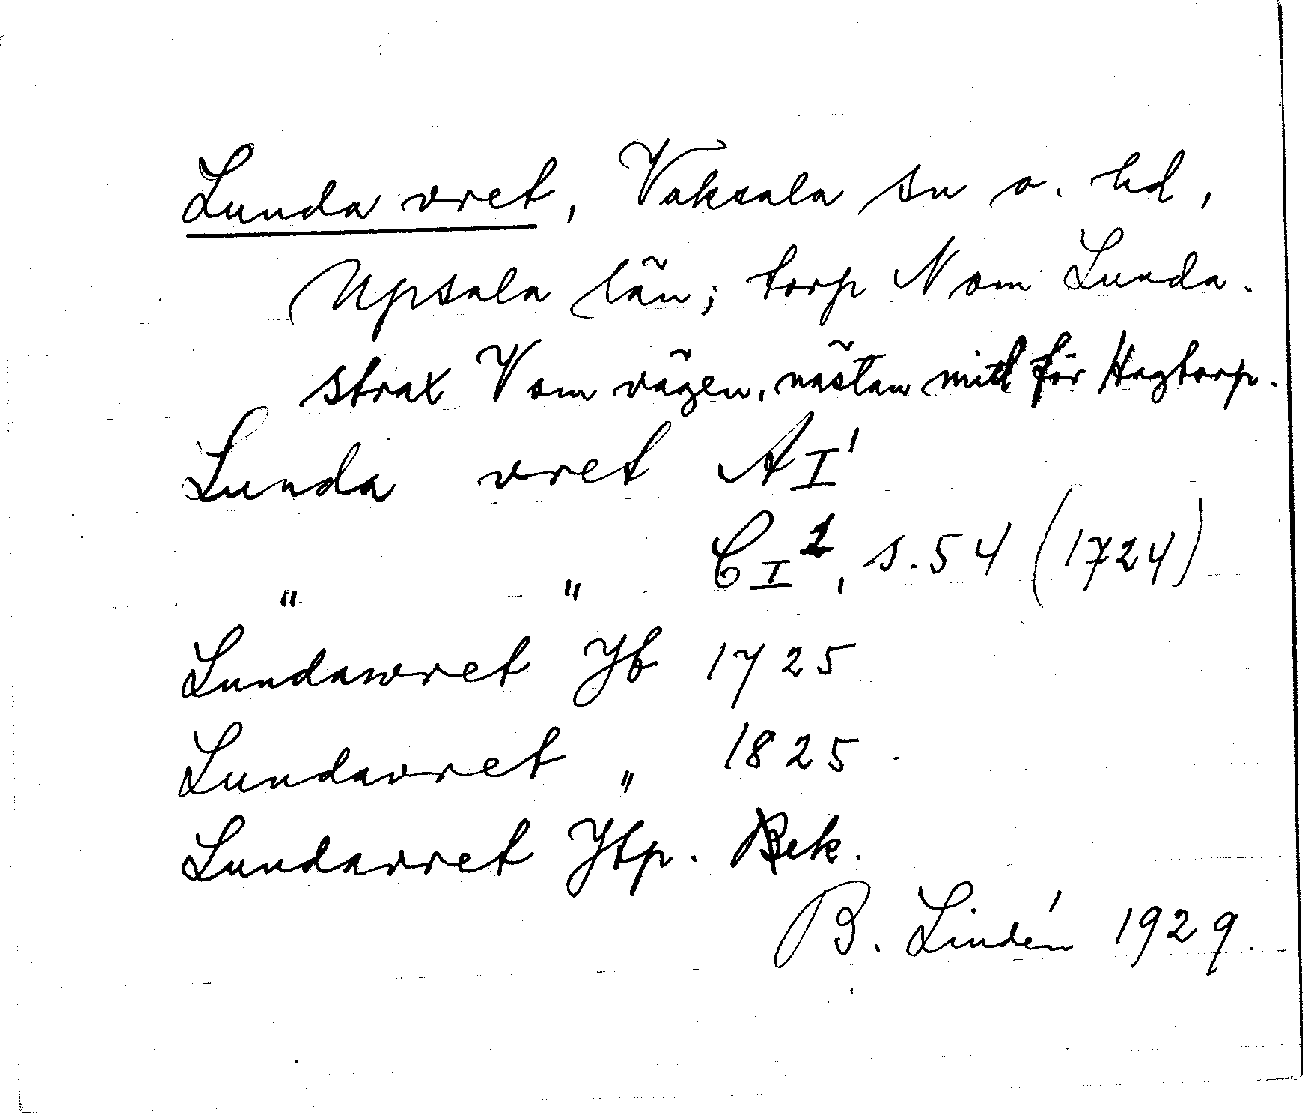 Lunda vret, Vaksala sn o. hd,
Upsala län; torp N om Lunda.
strax V om vägen, nästan mitt för Hagtorp.
Lunda vret A I¹
" " C I², s. 54 (1724)
Lundawret Jb 1725
Lundavret " 1825
Lundavret Jtp. Bek.
B. Lindén 1929.